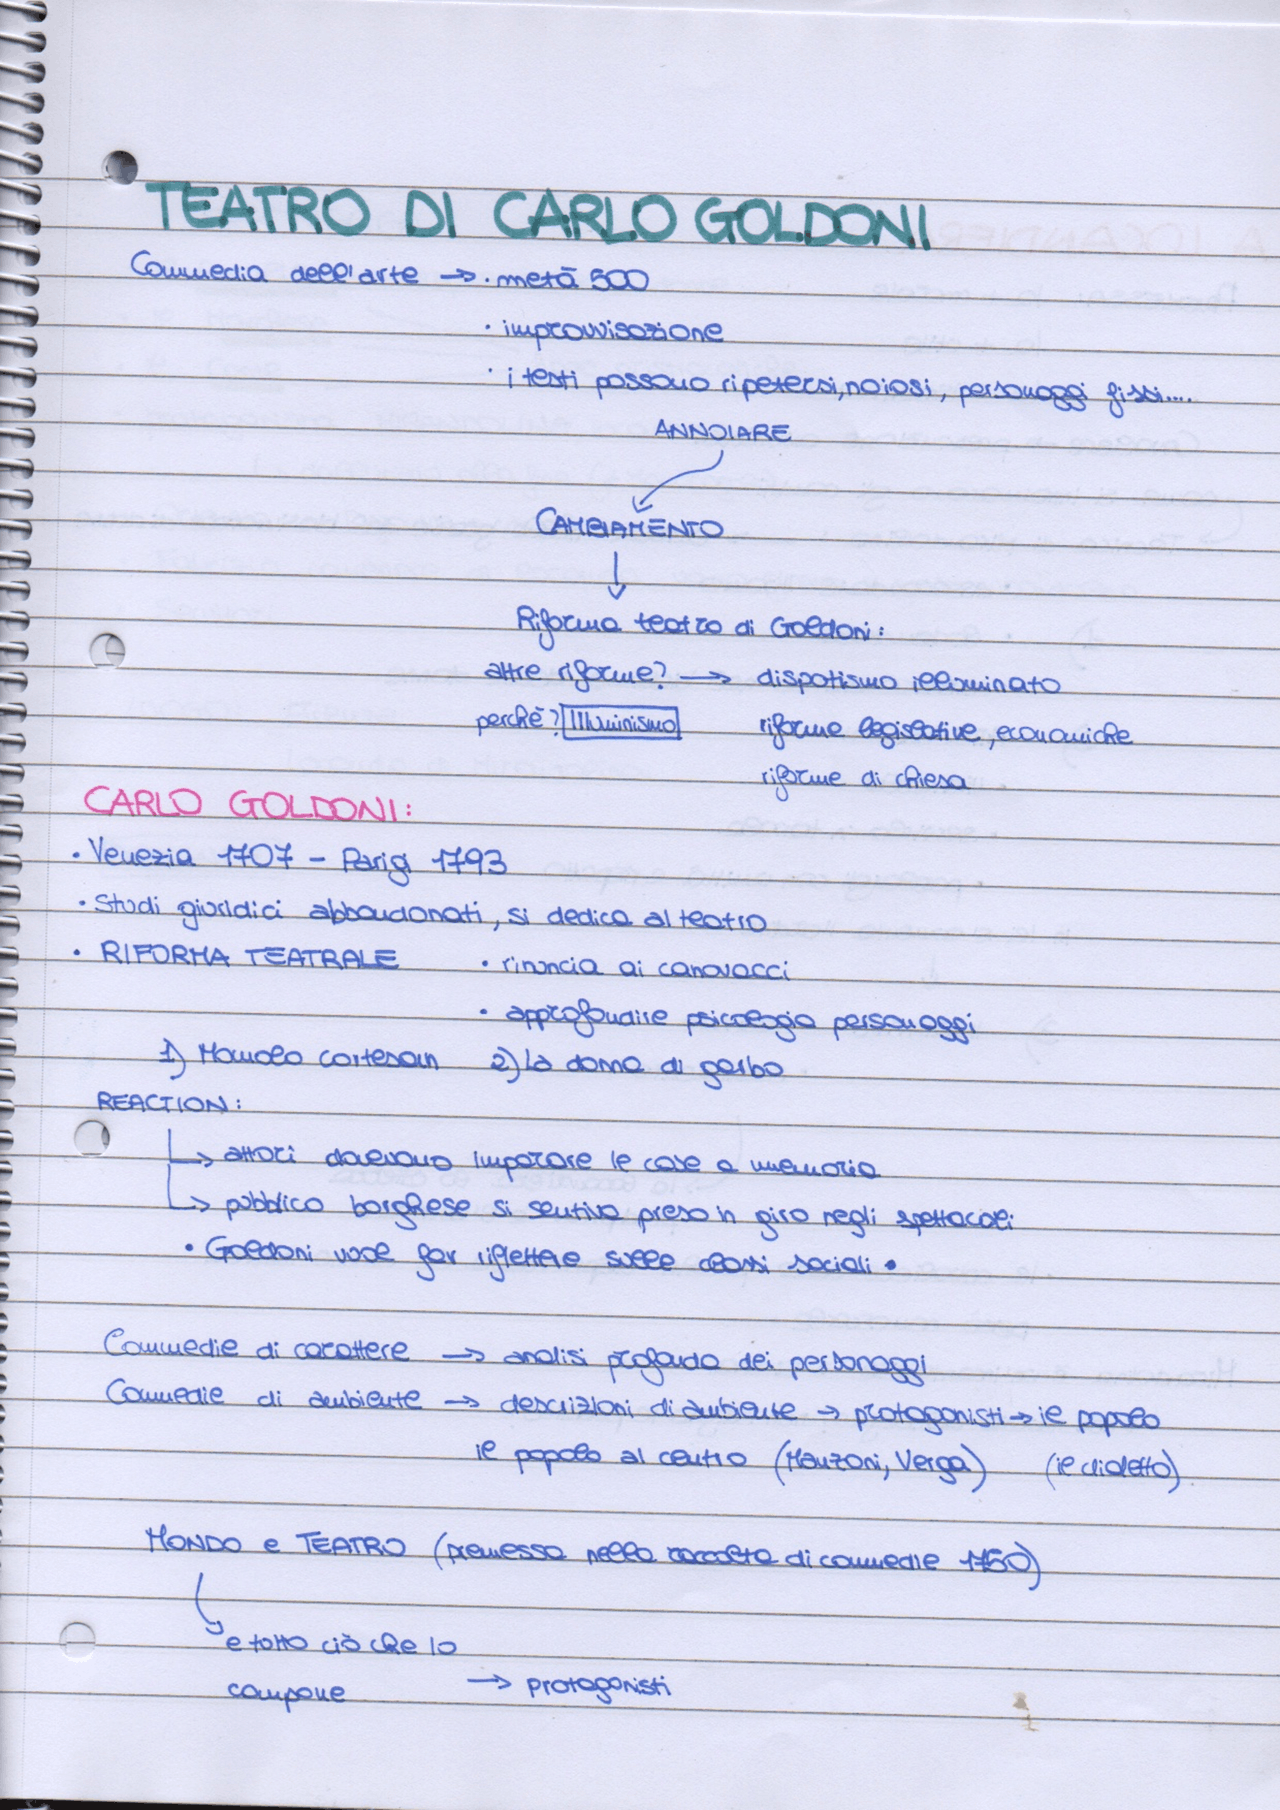 TEATRO DI CARLO GOLDONI
Commedia dell'arte → • metà 500
• improvvisazione
• i testi possono ripetersi, noiosi, personaggi fissi....
ANNOIARE
CAMBIAMENTO
Riforma teatro di Goldoni:
altre riforme? → dispotismo illuminato
perchè? Illuminismo riforme legislative, economiche
riforme di chiesa
CARLO GOLDONI:
• Venezia 1707 - Parigi 1793
• Studi giuridici abbandonati, si dedica al teatro
• RIFORMA TEATRALE • rinuncia ai canovacci
• approfondire psicologia personaggi
1) Momolo cortesan 2) La donna di garbo
REACTION:
↳ attori dovevano imparare le cose a memoria
↳ pubblico borghese si sentiva preso in giro negli spettacoli
• Goldoni vuole far riflettere sulle classi sociali •
Commedie di carattere → analisi profonda dei personaggi
Commedie di ambiente → descrizioni di ambiente → protagonisti → il popolo
il popolo al centro (Manzoni, Verga) (il dialetto)
MONDO e TEATRO (premessa nella raccolta di commedie 1750)
↳ e tutto ciò che lo
compone → protagonisti